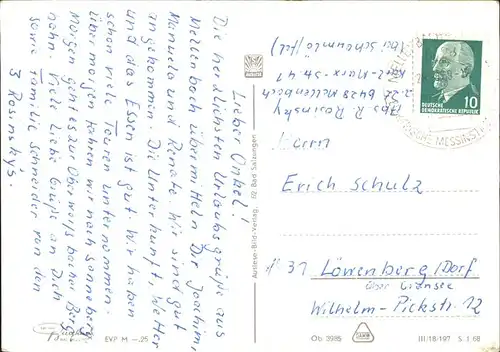 Lieber Onkel!
Die herzlichsten Urlaubsgrüße aus
Mellenbach übermitteln Dir Joachim,
Manuela und Renate. Wir sind gut
angekommen. Die Unterkunft, Wetter
und das Essen ist gut. Wir haben
schon viele Touren unternommen.
Übermorgen fahren wir nach Sonneberg.
Morgen geht es zur Oberweißbacher Berg-
bahn. Viele liebe Grüße an Dich
sowie Familie Schneider von den
3 Rosinsky's.
Abs. R. Rosinsky
z.Zt. 6428 Mellenbach
Karl-Marx-Str. 41
(bei Scheumlo)
Herrn
Erich Schulz
31 Löwenberg/Dorf
über Gransee
Wilhelm-Pickstr. 12
DEUTSCHE
DEMOKRATISCHE REPUBLIK
10
Auslese-Bild-Verlag, 62 Bad Salzungen
EVP M -,25
Ob 3985
III/18/197 S 1 68